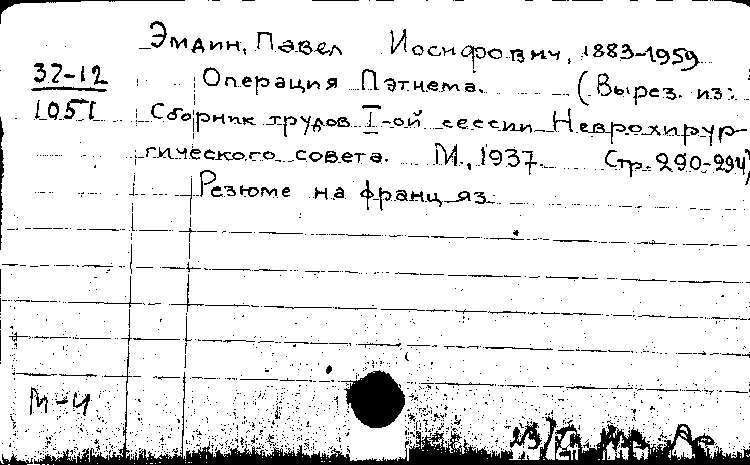 Эмдин, Павел Иосифович, 1883-1959
37-12
1051
Операция Пэтнема. (Вырез. из:
Сборник трудов I-ой сессии Нейрохирур-
гического совета. М., 1937. Стр. 290-294)
Резюме на франц яз
М-4